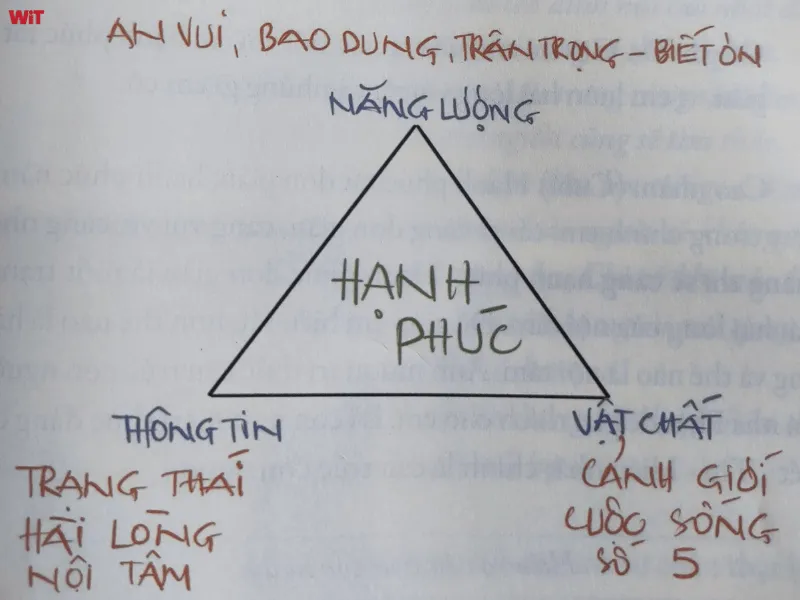 WiT
AN VUI, BAO DUNG, TRÂN TRỌNG, BIẾT ƠN
NĂNG LƯỢNG
HẠNH
PHÚC
THÔNG TIN
VẬT CHẤT
TRẠNG THÁI
HÀI LÒNG
NỘI TÂM
CẢNH GIỚI
CUỘC SỐNG
SỐ 5